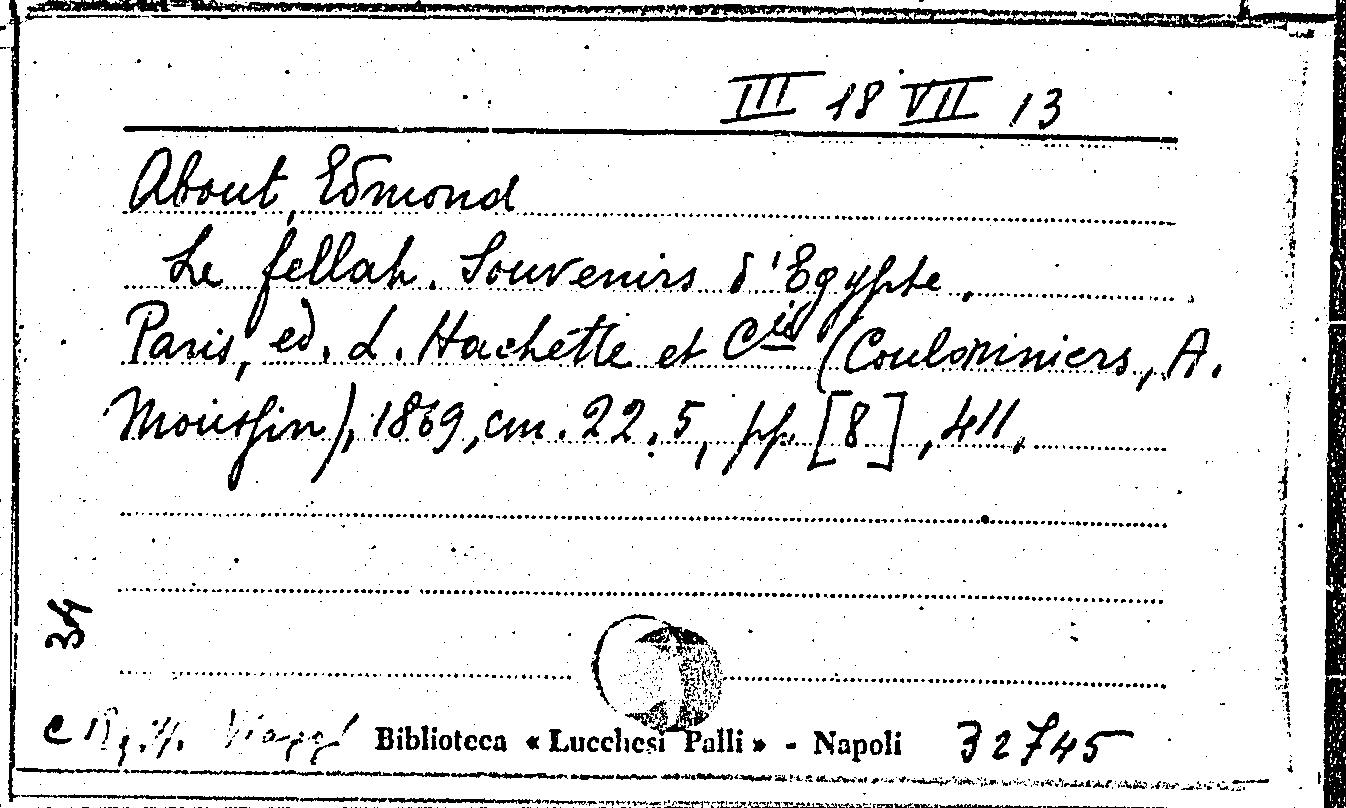 III 18 VII 13
About, Edmond
Le fellah. Souvenirs d'Egypte.
Paris, ed. L. Hachette et Cie (Coulominiers, A.
Moussin), 1869, cm. 22.5, pp. [8], 411.
34
Viaggi
Biblioteca « Lucchesi Palli » - Napoli 32745